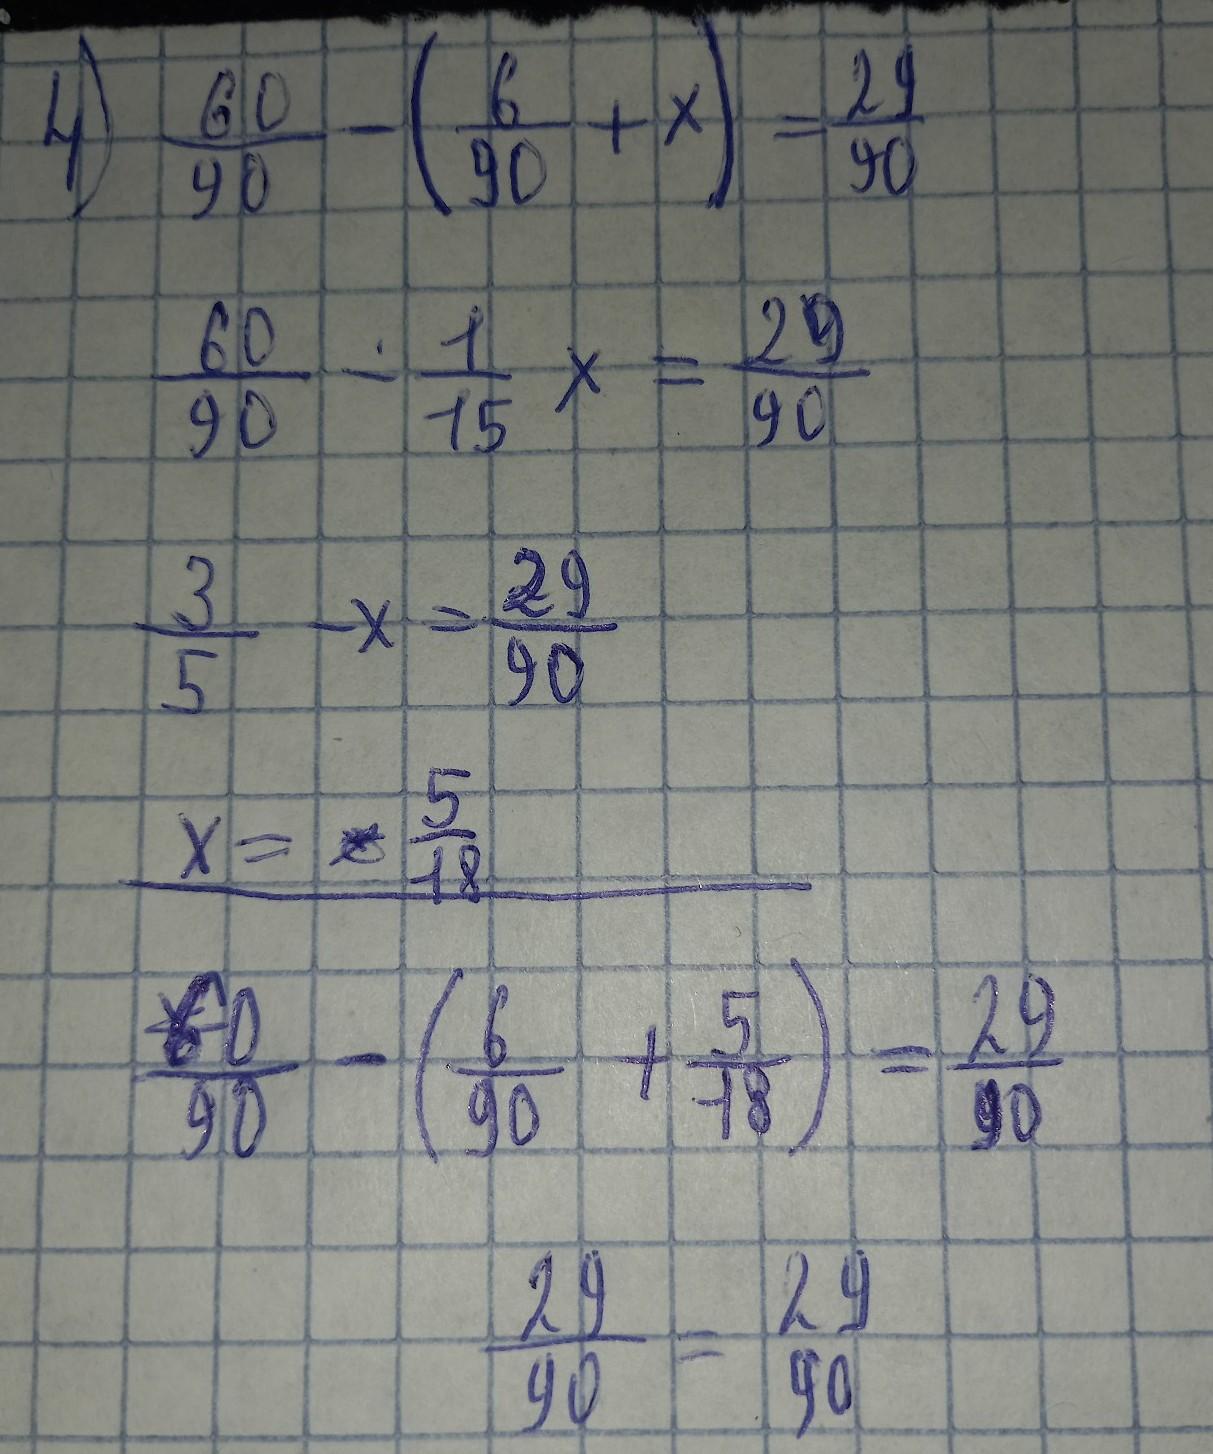 4) 60/90 - (6/90 + x) = 29/90
60/90 - 1/15 x = 29/90
3/5 - x = 29/90
x = 5/18
60/90 - (6/90 + 5/18) = 29/90
29/90 = 29/90